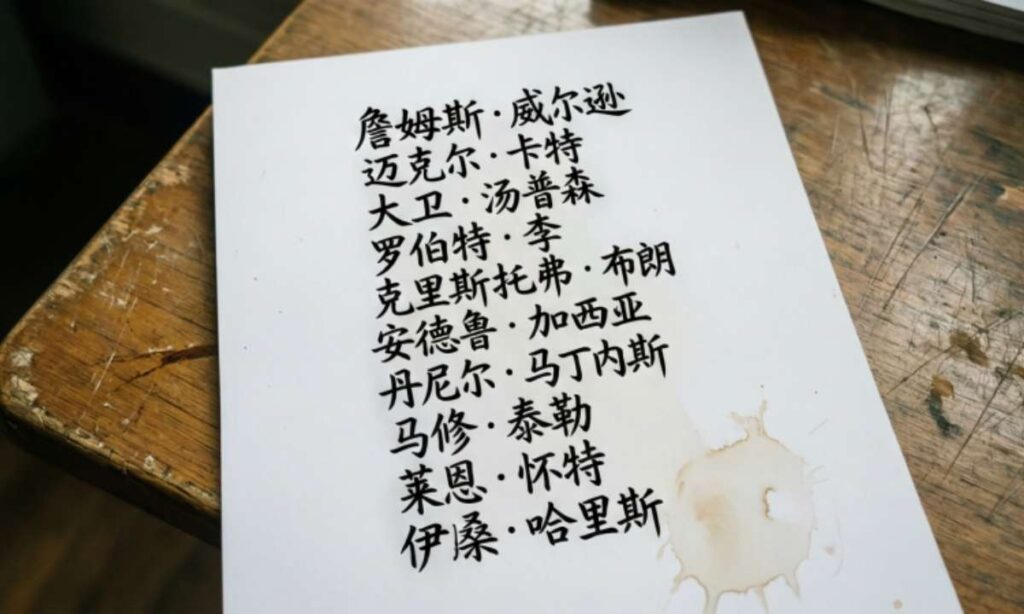 詹姆斯·威尔逊
迈克尔·卡特
大卫·汤普森
罗伯特·李
克里斯托弗·布朗
安德鲁·加西亚
丹尼尔·马丁内斯
马修·泰勒
莱恩·怀特
伊桑·哈里斯